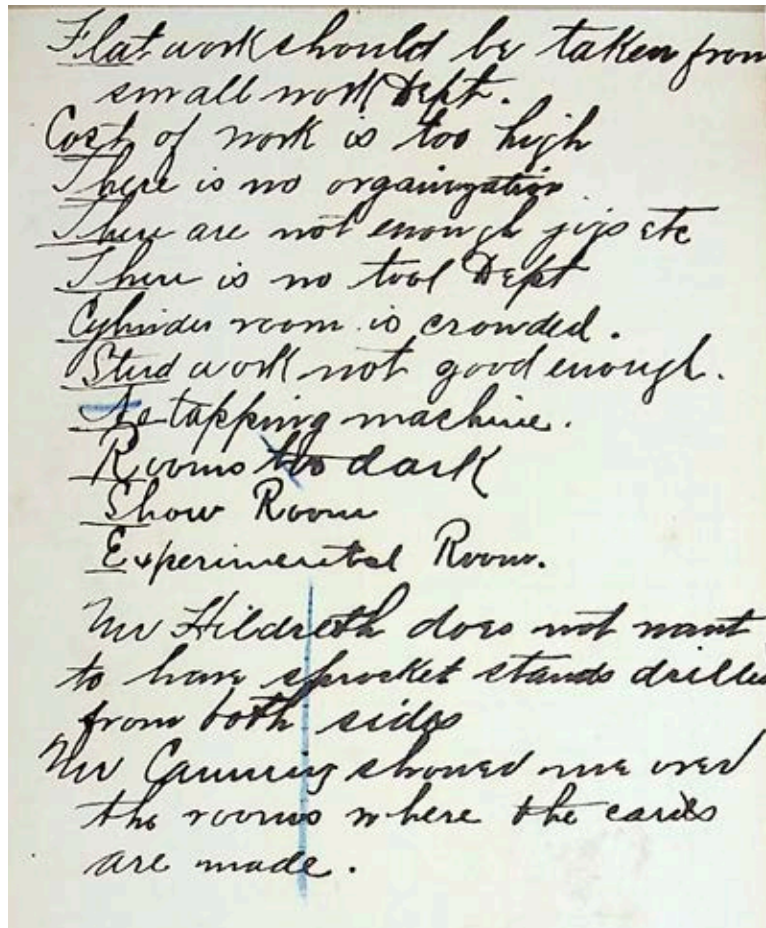 Flat work should be taken from
small work Dept.
Cost of work is too high
There is no organization
There are not enough jigs etc
There is no tool Dept
Cylinder room is crowded.
Stud work not good enough.
tapping machine.
Rooms too dark
Show Room
Experimental Room.
Mr Hildreth does not want
to have sprocket stands drilled
from both sides
Mr Canning showed me over
the rooms where the cards
are made.